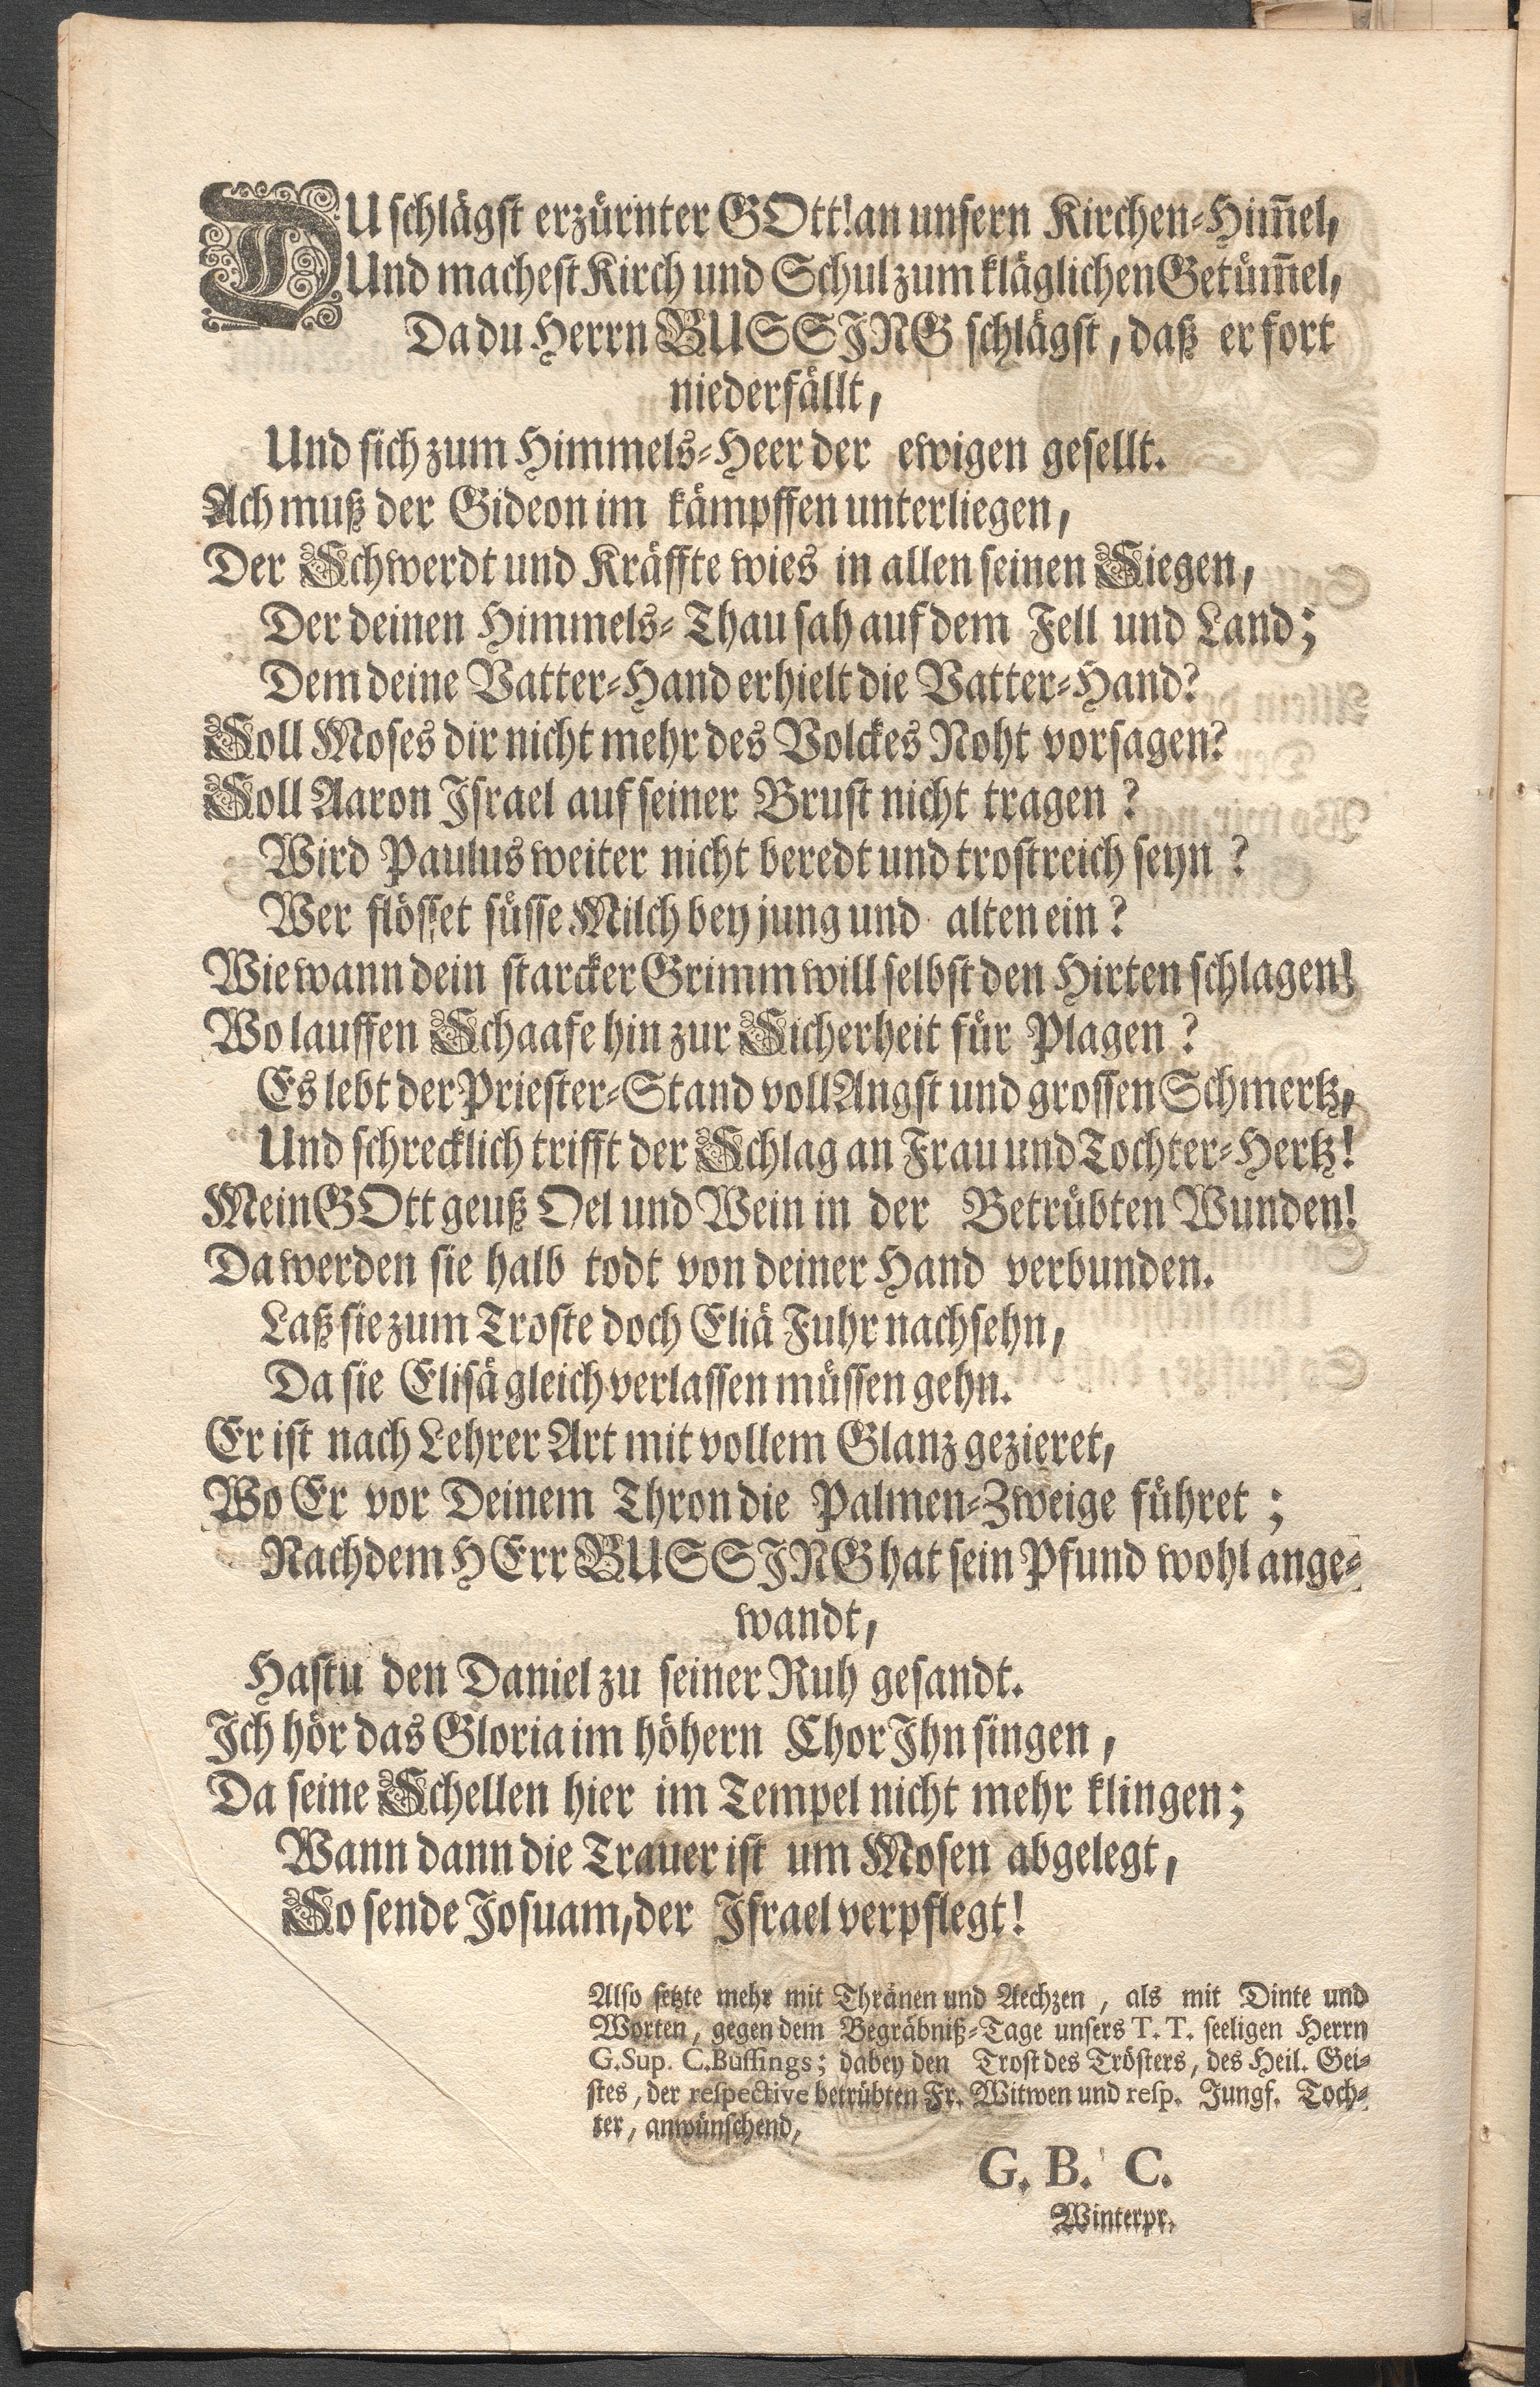 DU schlägst erzürnter GOtt! an unsern Kirchen-Him̃el,
Und machest Kirch und Schul zum kläglichen Getüm̃el,
Da du Herrn BUSSJNG schlägst, daß er fort
niederfällt,
Und sich zum Himmels-Heer der ewigen gesellt.
Ach muß der Gideon im kämpffen unterliegen,
Der Schwerdt und Kräffte wies in allen seinen Siegen,
Der deinen Himmels-Thau sah auf dem Fell und Land;
Dem deine Vatter-Hand erhielt die Vatter-Hand?
Soll Moses dir nicht mehr des Volckes Noht vorsagen?
Soll Aaron Israel auf seiner Brust nicht tragen?
Wird Paulus weiter nicht beredt und trostreich seyn?
Wer flösset süsse Milch bey jung und alten ein?
Wie wann dein starcker Grimm will selbst den Hirten schlagen!
Wo lauffen Schaafe hin zur Sicherheit für Plagen?
Es lebt der Priester-Stand voll Angst und grossen Schmertz,
Und schrecklich trifft der Schlag an Frau und Tochter-Hertz!
Mein GOtt geuß Oel und Wein in der Betrübten Wunden!
Da werden sie halb todt von deiner Hand verbunden.
Laß sie zum Troste doch Eliä Fuhr nachsehn,
Da sie Elisä gleich verlassen müssen gehn.
Er ist nach Lehrer Art mit vollem Glanz gezieret,
Wo Er vor Deinem Thron die Palmen-Zweige führet;
Nachdem HErr BUSSJNG hat sein Pfund wohl ange-
wandt,
Hastu den Daniel zu seiner Ruh gesandt.
Ich hör das Gloria im höhern Chor Ihn singen,
Da seine Schellen hier im Tempel nicht mehr klingen;
Wann dann die Trauer ist um Mosen abgelegt,
So sende Josuam, der Israel verpflegt!
Also setzte mehr mit Thränen und Aechzen, als mit Dinte und
Worten, gegen dem Begräbniß-Tage unsers T. T. seeligen Herrn
G. Sup. C. Büssings; dabey den Trost des Trösters, des Heil. Gei-
stes, der respective betrübten Fr. Witwen und resp. Jungf. Toch-
ter, anwünschend,
G. B. C.
Winterpr.